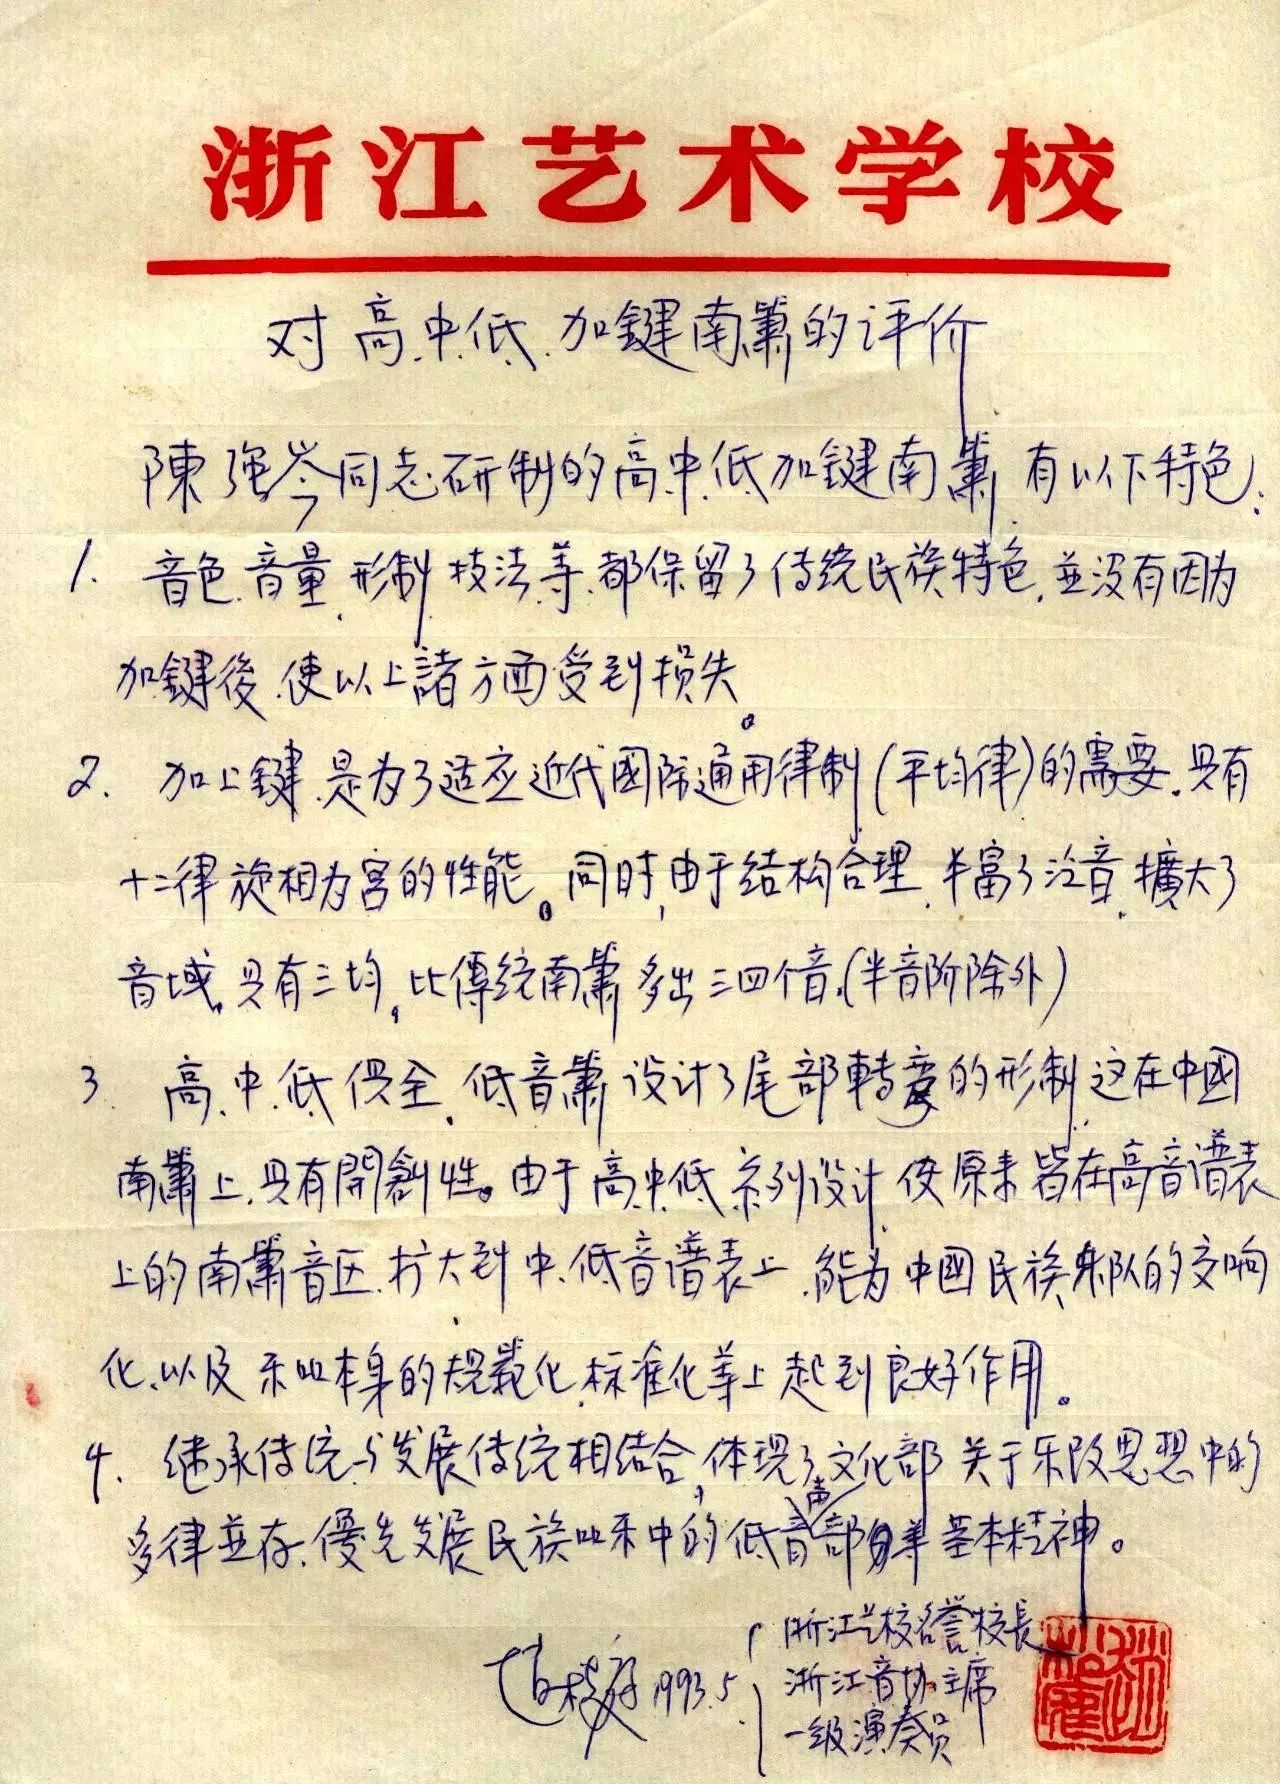 浙江艺术学校
对高.中.低.加鍵南簫的评价
陳强岑同志研制的高.中.低加鍵南簫.有以下特色:
1. 音色.音量.形制.技法.等.都保留了传统民族特色.並没有因为
加鍵後.使以上諸方面受到损失。
2. 加上鍵.是为了适应近代國际通用律制(平均律)的需要.具有
十二律旋相为宫的性能。同时,由于结构合理.丰富了泛音.擴大了
音域.具有三均.比傳统南簫多出三四个音.(半音阶除外)
3. 高.中.低俱全.低音簫设计了尾部轉彎的形制.这在中國
南簫上.具有開創性。由于高.中.低.系列设计.使原来皆在高音谱表
上的南簫音区.扩大到中.低音谱表上.能为中國民族乐队的交响
化.以及乐器本身的规范化.标准化等上起到良好作用。
4. 继承传统与发展传统相结合,体现了文化部关于乐改思想中的
多律並存.優先发展民族吹乐中的低音声部等基本精神。
赵松庭1993.5.
浙江艺校名誉校長
浙江音协.主席
一级演奏员